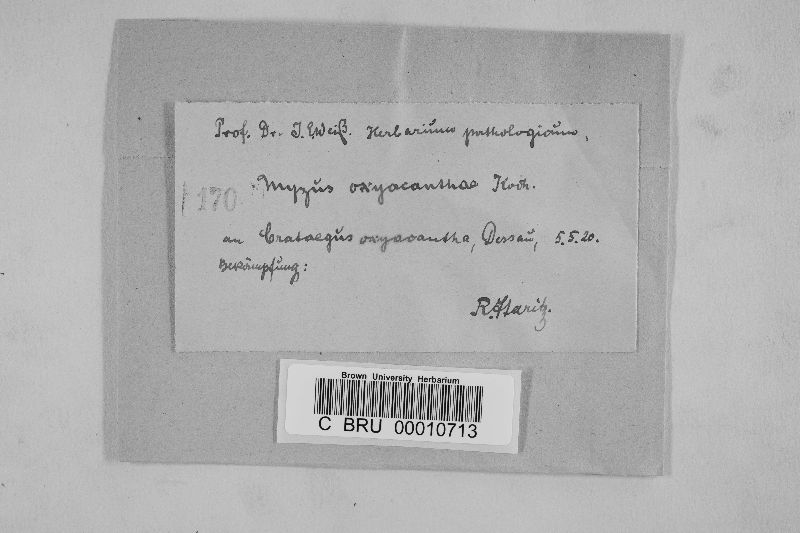 Prof. Dr. J. E. Weiß. Herbarium pathologicum.
170
Myzus oxyacanthae Koch.
an Crataegus oxyacantha, Dessau, 5.5.20.
Bekämpfung:
R. Staritz.
Brown University Herbarium
C BRU 00010713